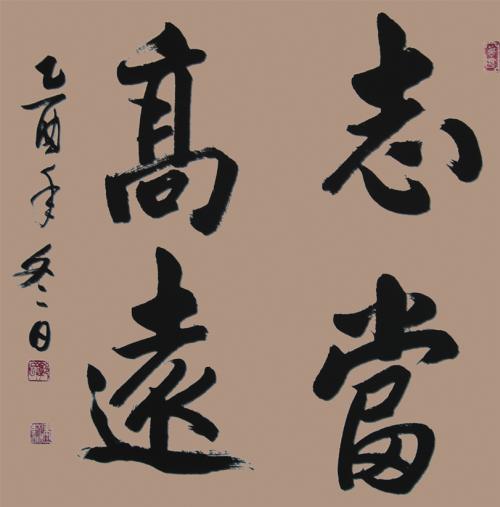 志當
高遠
乙酉年冬日